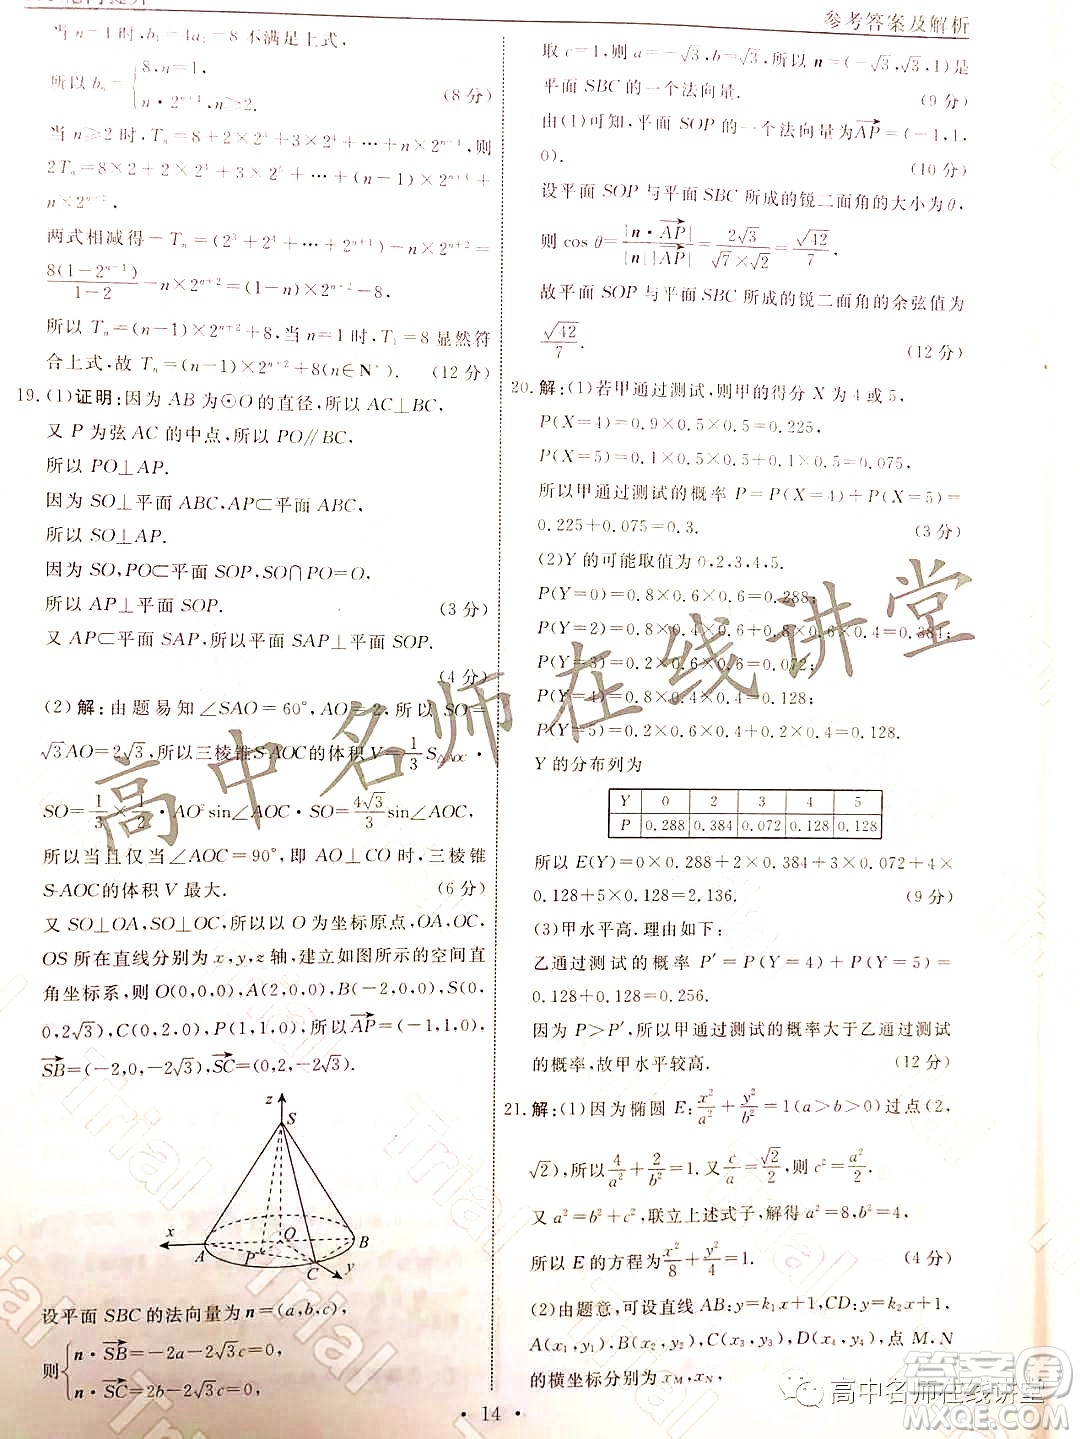 参考答案及解析
当 n=1 时, b₁=4a₁=8 不满足上式,
所以 bₙ={8,n=1, n·2ⁿ⁺¹,n≥2. (8 分)
当 n≥2 时, Tₙ=8+2×2³+3×2⁴+…+n×2ⁿ⁺¹, 则
2Tₙ=8×2+2×2⁴+3×2⁵+…+(n-1)×2ⁿ⁺¹+
n×2ⁿ⁺².
两式相减得-Tₙ=(2³+2⁴+…+2ⁿ⁺¹)-n×2ⁿ⁺²=
8(1-2ⁿ⁻¹)/(1-2)-n×2ⁿ⁺²=2ⁿ⁺²-n×2ⁿ⁺²-8,
所以 Tₙ=(n-1)×2ⁿ⁺²+8,当 n=1 时,T₁=8 显然符
合上式,故 Tₙ=(n-1)×2ⁿ⁺²+8(n∈N*). (12 分)
19.(1)证明:因为 AB 为⊙O 的直径,所以 AC⊥BC,
又 P 为弦 AC 的中点,所以 PO∥BC,
所以 PO⊥AP.
因为 SO⊥平面 ABC,AP⊂平面 ABC,
所以 SO⊥AP.
因为 SO,PO⊂平面 SOP,SO∩PO=O,
所以 AP⊥平面 SOP. (3 分)
又 AP⊂平面 SAP,所以平面 SAP⊥平面 SOP.
(4 分)
(2)解:由题易知∠SAO=60°,AO=2,所以 SO=
√3AO=2√3,所以三棱锥S-AOC的体积V=1/3 S△AOC·
SO=1/3×1/2·AO²sin∠AOC·SO=4√3/3 sin∠AOC,
所以当且仅当∠AOC=90°,即 AO⊥CO 时,三棱锥
S-AOC的体积 V 最大. (6 分)
又 SO⊥OA,SO⊥OC,所以以 O 为坐标原点,OA,OC,
OS 所在直线分别为 x,y,z 轴,建立如图所示的空间直
角坐标系,则 O(0,0,0),A(2,0,0),B(-2,0,0),S(0,
0,2√3),C(0,2,0),P(1,1,0),所以AP→=(-1,1,0),
SB→=(-2,0,-2√3),SC→=(0,2,-2√3)
z
S
x
A
O
B
P
C
y
设平面 SBC 的法向量为 n=(a,b,c),
则{n·SB→=-2a-2√3c=0, n·SC→=2b-2√3c=0,
取 c=1,则 a=-√3,b=√3,所以 n=(-√3,√3,1)是
平面 SBC 的一个法向量. (9 分)
由(1)可知,平面 SOP 的一个法向量为AP→=(-1,1,
0). (10 分)
设平面 SOP 与平面 SBC 所成的锐二面角的大小为θ,
则 cos θ=|n·AP→|/|n||AP→|=2√3/(√7×√2)=√42/7.
故平面 SOP 与平面 SBC 所成的锐二面角的余弦值为
√42/7. (12 分)
20.解:(1)若甲通过测试,则甲的得分 X 为 4 或 5,
P(X=4)=0.9×0.5×0.5=0.225,
P(X=5)=0.1×0.5×0.5+0.1×0.5×0.5=0.075,
所以甲通过测试的概率 P=P(X=4)+P(X=5)=
0.225+0.075=0.3. (3 分)
(2)Y 的可能取值为 0,2,3,4,5.
P(Y=0)=0.8×0.6×0.6=0.288;
P(Y=2)=0.8×0.4×0.6+0.8×0.6×0.4=0.384;
P(Y=3)=0.2×0.6×0.6=0.072;
P(Y=4)=0.8×0.4×0.4=0.128;
所以 E(Y)=0×0.288+2×0.384+3×0.072+4×
P(Y=5)=0.2×0.4+0.2×0.6×0.4=0.128.
Y 的分布列为
Y 0 2 3 4 5
P 0.288 0.384 0.072 0.128 0.128
0.128+5×0.128=2.136. (9 分)
(3)甲水平高.理由如下:
乙通过测试的概率 P′=P(Y=4)+P(Y=5)=
0.128+0.128=0.256.
因为 P>P′,所以甲通过测试的概率大于乙通过测试
的概率,故甲水平较高. (12 分)
21.解:(1)因为椭圆 E:x²/a²+y²/b²=1(a>b>0)过点(2,
√2),所以 4/a²+2/b²=1.又 c/a=√2/2,则 c²=a²/2.
又 a²=b²+c²,联立上述式子,解得 a²=8,b²=4,
所以 E 的方程为x²/8+y²/4=1. (4 分)
(2)由题意,可设直线 AB:y=k₁x+1,CD:y=k₂x+1,
A(x₁,y₁),B(x₂,y₂),C(x₃,y₃),D(x₄,y₄),M,N
的横坐标分别为 x_M,x_N,
• 14 •
高中名师在线讲堂
Trial
高中名师在线讲堂
答案圈